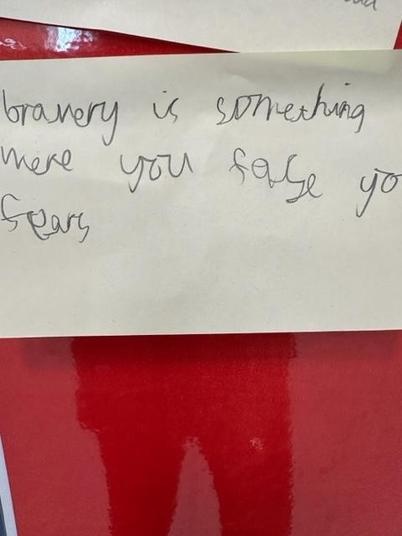 bravery is something
were you fase yo
fears